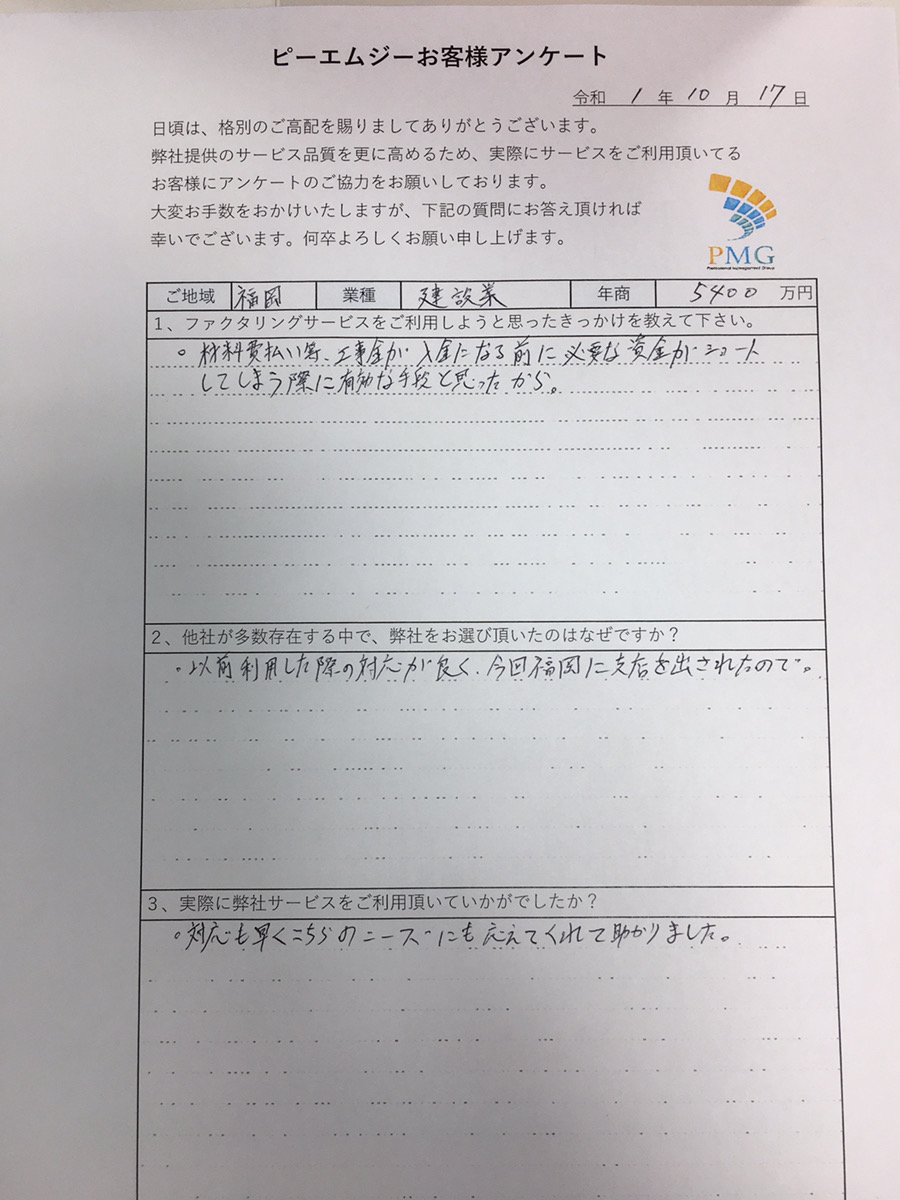 ピーエムジーお客様アンケート
令和 1 年 10 月 17 日
日頃は、格別のご高配を賜りましてありがとうございます。
弊社提供のサービス品質を更に高めるため、実際にサービスをご利用頂いてる
お客様にアンケートのご協力をお願いしております。
大変お手数をおかけいたしますが、下記の質問にお答え頂ければ
幸いでございます。何卒よろしくお願い申し上げます。
PMG
Professional Management Group
ご地域 福岡 業種 建設業 年商 5400 万円
1、ファクタリングサービスをご利用しようと思ったきっかけを教えて下さい。
。材料費払い等、工事金が入金になる前に必要な資金がショート
してしまう際に有効な手段と思ったから。
2、他社が多数存在する中で、弊社をお選び頂いたのはなぜですか？
。以前利用した際の対応が良く、今回福岡に支店を出されたので。
3、実際に弊社サービスをご利用頂いていかがでしたか？
。対応も早くこちらのニーズにも応えてくれて助かりました。